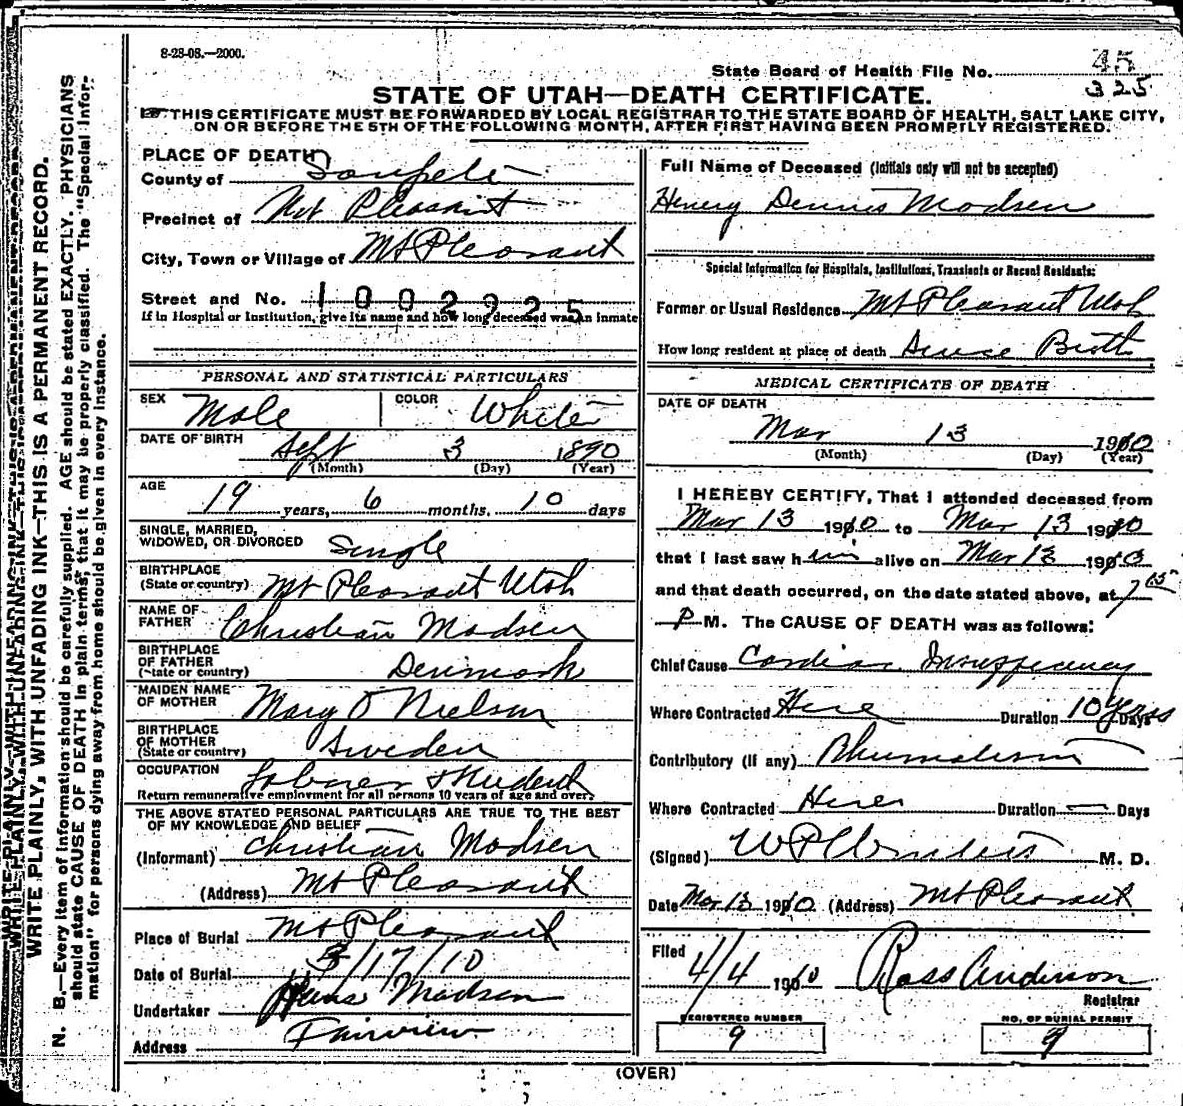 8-28-08.—2000.
State Board of Health File No. 45
325
STATE OF UTAH—DEATH CERTIFICATE.
THIS CERTIFICATE MUST BE FORWARDED BY LOCAL REGISTRAR TO THE STATE BOARD OF HEALTH, SALT LAKE CITY,
ON OR BEFORE THE 5TH OF THE FOLLOWING MONTH, AFTER FIRST HAVING BEEN PROMPTLY REGISTERED.
WRITE PLAINLY, WITH UNFADING INK—THIS IS A PERMANENT RECORD.
N. B.—Every item of information should be carefully supplied. AGE should be stated EXACTLY. PHYSICIANS
should state CAUSE OF DEATH in plain terms, that it may be properly classified. The "Special Infor-
mation" for persons dying away from home should be given in every instance.
PLACE OF DEATH
County of Sanpete
Precinct of Mt Pleasant
City, Town or Village of Mt Pleasant
Street and No. 1002925
If in Hospital or Institution, give its name and how long deceased was an inmate
PERSONAL AND STATISTICAL PARTICULARS
SEX Male COLOR White
DATE OF BIRTH Sept 3 1890
(Month) (Day) (Year)
AGE 19 years, 6 months, 10 days
SINGLE, MARRIED,
WIDOWED, OR DIVORCED Single
BIRTHPLACE
(State or country) Mt Pleasant Utah
NAME OF
FATHER Christian Madsen
BIRTHPLACE
OF FATHER
(State or country) Denmark
MAIDEN NAME
OF MOTHER Mary O Nielson
BIRTHPLACE
OF MOTHER
(State or country) Sweden
OCCUPATION Laborer & Student
Return remunerative employment for all persons 10 years of age and over.
THE ABOVE STATED PERSONAL PARTICULARS ARE TRUE TO THE BEST
OF MY KNOWLEDGE AND BELIEF
(Informant) Christian Madsen
(Address) Mt Pleasant
Place of Burial Mt Pleasant
Date of Burial 3/17/10
Undertaker Hans Madsen
Address Fairview
Full Name of Deceased (Initials only will not be accepted)
Henery Dennis Madsen
Special Information for Hospitals, Institutions, Transients or Recent Residents:
Former or Usual Residence Mt Pleasant Utah
How long resident at place of death Since Birth
MEDICAL CERTIFICATE OF DEATH
DATE OF DEATH
Mar 13 1910
(Month) (Day) (Year)
I HEREBY CERTIFY, That I attended deceased from
Mar 13 1910 to Mar 13 1910
that I last saw him alive on Mar 13 1910
and that death occurred, on the date stated above, at 7
P M. The CAUSE OF DEATH was as follows:
Chief Cause Cardiac Insufficiency
Where Contracted Here Duration 10 Years Days
Contributory (if any) Rhumatism
Where Contracted Here Duration — Days
(Signed) M. D.
Date Mar 13 1910 (Address) Mt Pleasant
Filed 4/4 1910 Ross Anderson
Registrar
REGISTERED NUMBER NO. OF BURIAL PERMIT
9 9
(OVER)